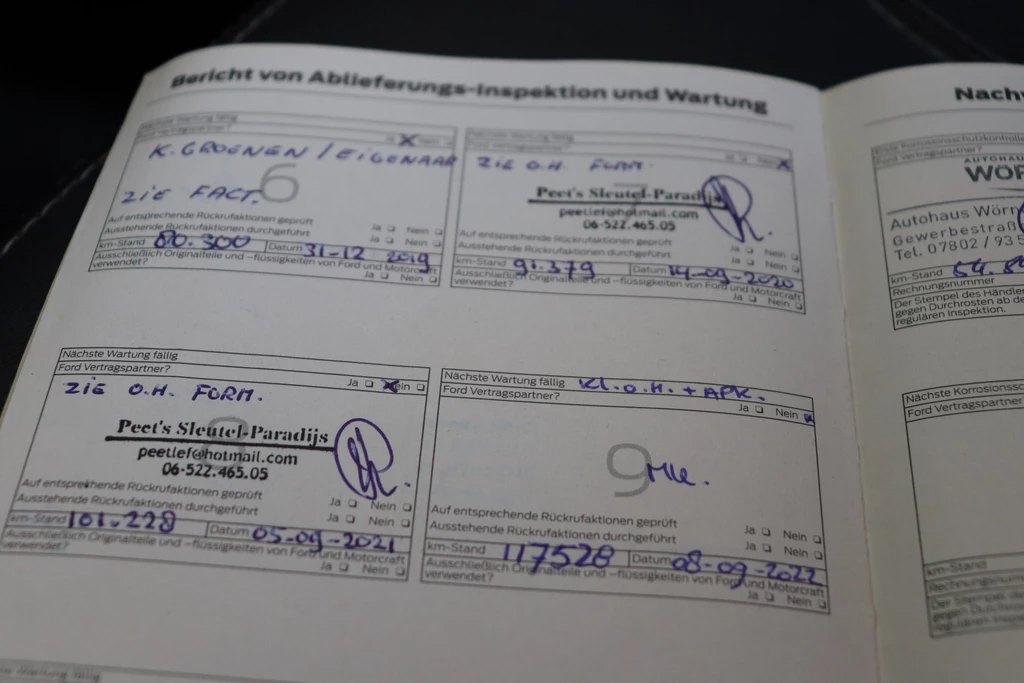 Bericht von Ablieferungs-Inspektion und Wartung
Nächste Wartung fällig
Ford Vertragspartner?
Ja Nein
K. GROENEN / EIGENAAR
6
ZIE FACT.
Auf entsprechende Rückrufaktionen geprüft
Ja Nein
Ausstehende Rückrufaktionen durchgeführt
Ja Nein
km-Stand 80.300 Datum 31-12 2019
Ausschließlich Originalteile und -flüssigkeiten von Ford und Motorcraft
verwendet?
Ja Nein
Nächste Wartung fällig
Ford Vertragspartner?
Ja Nein
ZIE O.H. FORM.
Peet's Sleutel-Paradijs
peetlef@hotmail.com
06-522.465.05
Auf entsprechende Rückrufaktionen geprüft
Ja Nein
Ausstehende Rückrufaktionen durchgeführt
Ja Nein
km-Stand 91.379 Datum 14-09-2020
Ausschließlich Originalteile und -flüssigkeiten von Ford und Motorcraft
verwendet?
Ja Nein
Nächste Wartung fällig
Ford Vertragspartner?
Ja Nein
ZIE O.H. FORM.
8
Peet's Sleutel-Paradijs
peetlef@hotmail.com
06-522.465.05
Auf entsprechende Rückrufaktionen geprüft
Ja Nein
Ausstehende Rückrufaktionen durchgeführt
Ja Nein
km-Stand 101.228 Datum 05-09-2021
Ausschließlich Originalteile und -flüssigkeiten von Ford und Motorcraft
verwendet?
Ja Nein
Nächste Wartung fällig KL.O.H. + APK.
Ford Vertragspartner?
Ja Nein
9
Auf entsprechende Rückrufaktionen geprüft
Ja Nein
Ausstehende Rückrufaktionen durchgeführt
Ja Nein
km-Stand 117528 Datum 08-09-2022
Ausschließlich Originalteile und -flüssigkeiten von Ford und Motorcraft
verwendet?
Ja Nein
Ford Vertragspartner?
AUTOHAU
WÖR
Autohaus Wörn
Gewerbestraß
Tel. 07802 / 93 5
km-Stand 54.8
Rechnungsnummer
Der Stempel des Händle
gegen Durchrosten ab de
regulären Inspektion.
Nächste Korrosionssc
Ford Vertragspartner
km-Stand